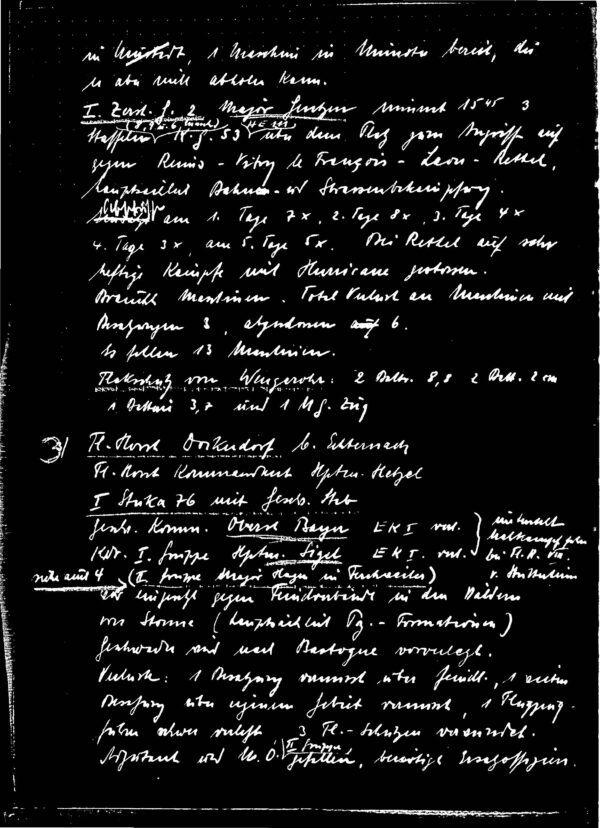 in Neustedt, 1 Maschine in Münster bereit, die
er aber nicht abholen kann.
I. Zerst. G. 2 Major Gentzen nimmt 15 45 3
Staffeln (8, 9 u. 6, ) K. G. 53 über dem Platz zum Angriff auf
gegen Reims - Vitry le François - Laon - Rethel,
hauptsächlich Bahnen- und Strassenbekämpfung.
am 1. Tage 7x, 2. Tage 8x, 3. Tage 4x
4. Tage 3x, am 5. Tage 5x. Bei Rethel auf sehr
heftige Kämpfe mit Hurricane gestossen.
Braucht Maschinen. Total Verlust an Maschinen mit
Besatzungen 3, abgeschossen 6.
Es fehlen 13 Maschinen.
Flakschutz von Wengerohr: 2 Battr. 8,8 2 Batt. 2 cm
1 Batterie 3,7 und 1 M.G. Zug
3/ Fl.-Horst Dockendorf b. Echternach
Fl.-Horst Kommandant Hptm. Hetzel
I Stuka 76 mit Geschw. Stab
Geschw. Komm. Oberst Bayer EK I verl.
Kdr. I. Gruppe Hptm. Sigel EK I. verl.
siehe auch 4 (II Gruppe Major Hagen in Ferschweiler)
eingesetzt gegen Feindverbände in den Wäldern
von Stonne (hauptsächlich Pz.-Formationen)
Geschwader wird nach Bastogne vorverlegt.
Verluste: 1 Besatzung vermisst über Feindl., 1 weitere
Besatzung über eigenem Gebiet vermisst, 1 Flugzeug-
führer schwer verletzt 3 Fl.-Schützen verwundet.
Adjutant und N.O. II Gruppe gefallen, benötigt Ersatzoffiziere.